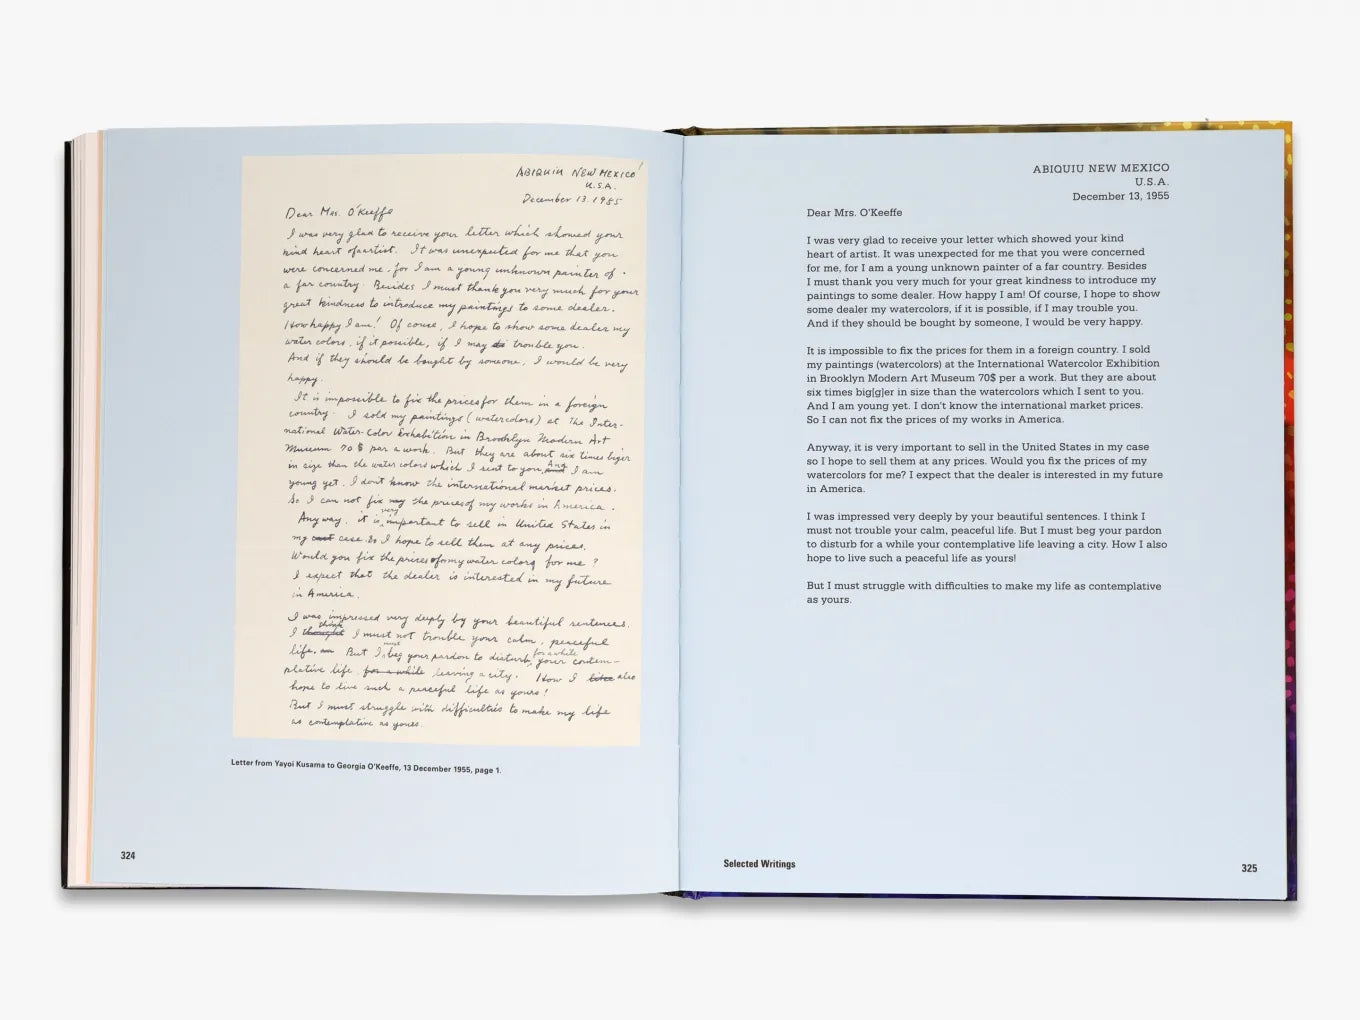 ABIQUIU NEW MEXICO
U.S.A.
December 13. 1955
Dear Mrs. O'Keeffe
I was very glad to receive your letter which showed your
kind heart of artist. It was unexpected for me that you
were concerned me, for I am a young unknown painter of
a far country. Besides I must thank you very much for your
great kindness to introduce my paintings to some dealer.
How happy I am! Of couse, I hope to show some dealer my
water colors, if it possible, if I may do trouble you.
And if they should be bought by someone, I would be very
happy.
It is impossible to fix the prices for them in a foreign
country. I sold my paintings (watercolors) at The Inter-
national Water-Color Exhibition in Brooklyn Modern Art
Museum 70 $ par a work. But they are about six times biger
in size than the water colors which I sent to you, And I am
young yet. I don't know the international market prices.
So I can not fix my the prices of my works in America.
Anyway, it is very important to sell in United States in
my case So I hope to sell them at any prices.
Would you fix the prices of my water colors for me?
I expect that the dealer is interested in my future
in America.
I was impressed very deeply by your beautiful sentences.
I thought think I must not trouble your calm, peaceful
life. But I must beg your pardon to disturb for a while your contem-
plative life for a while leaving a city. How I like also
hope to live such a peaceful life as yours!
But I must struggle with difficulties to make my life
as contemplative as yours.
Letter from Yayoi Kusama to Georgia O'Keeffe, 13 December 1955, page 1.
324
ABIQUIU NEW MEXICO
U.S.A.
December 13, 1955
Dear Mrs. O'Keeffe
I was very glad to receive your letter which showed your kind
heart of artist. It was unexpected for me that you were concerned
for me, for I am a young unknown painter of a far country. Besides
I must thank you very much for your great kindness to introduce my
paintings to some dealer. How happy I am! Of course, I hope to show
some dealer my watercolors, if it is possible, if I may trouble you.
And if they should be bought by someone, I would be very happy.
It is impossible to fix the prices for them in a foreign country. I sold
my paintings (watercolors) at the International Watercolor Exhibition
in Brooklyn Modern Art Museum 70$ per a work. But they are about
six times big[g]er in size than the watercolors which I sent to you.
And I am young yet. I don't know the international market prices.
So I can not fix the prices of my works in America.
Anyway, it is very important to sell in the United States in my case
so I hope to sell them at any prices. Would you fix the prices of my
watercolors for me? I expect that the dealer is interested in my future
in America.
I was impressed very deeply by your beautiful sentences. I think I
must not trouble your calm, peaceful life. But I must beg your pardon
to disturb for a while your contemplative life leaving a city. How I also
hope to live such a peaceful life as yours!
But I must struggle with difficulties to make my life as contemplative
as yours.
Selected Writings
325